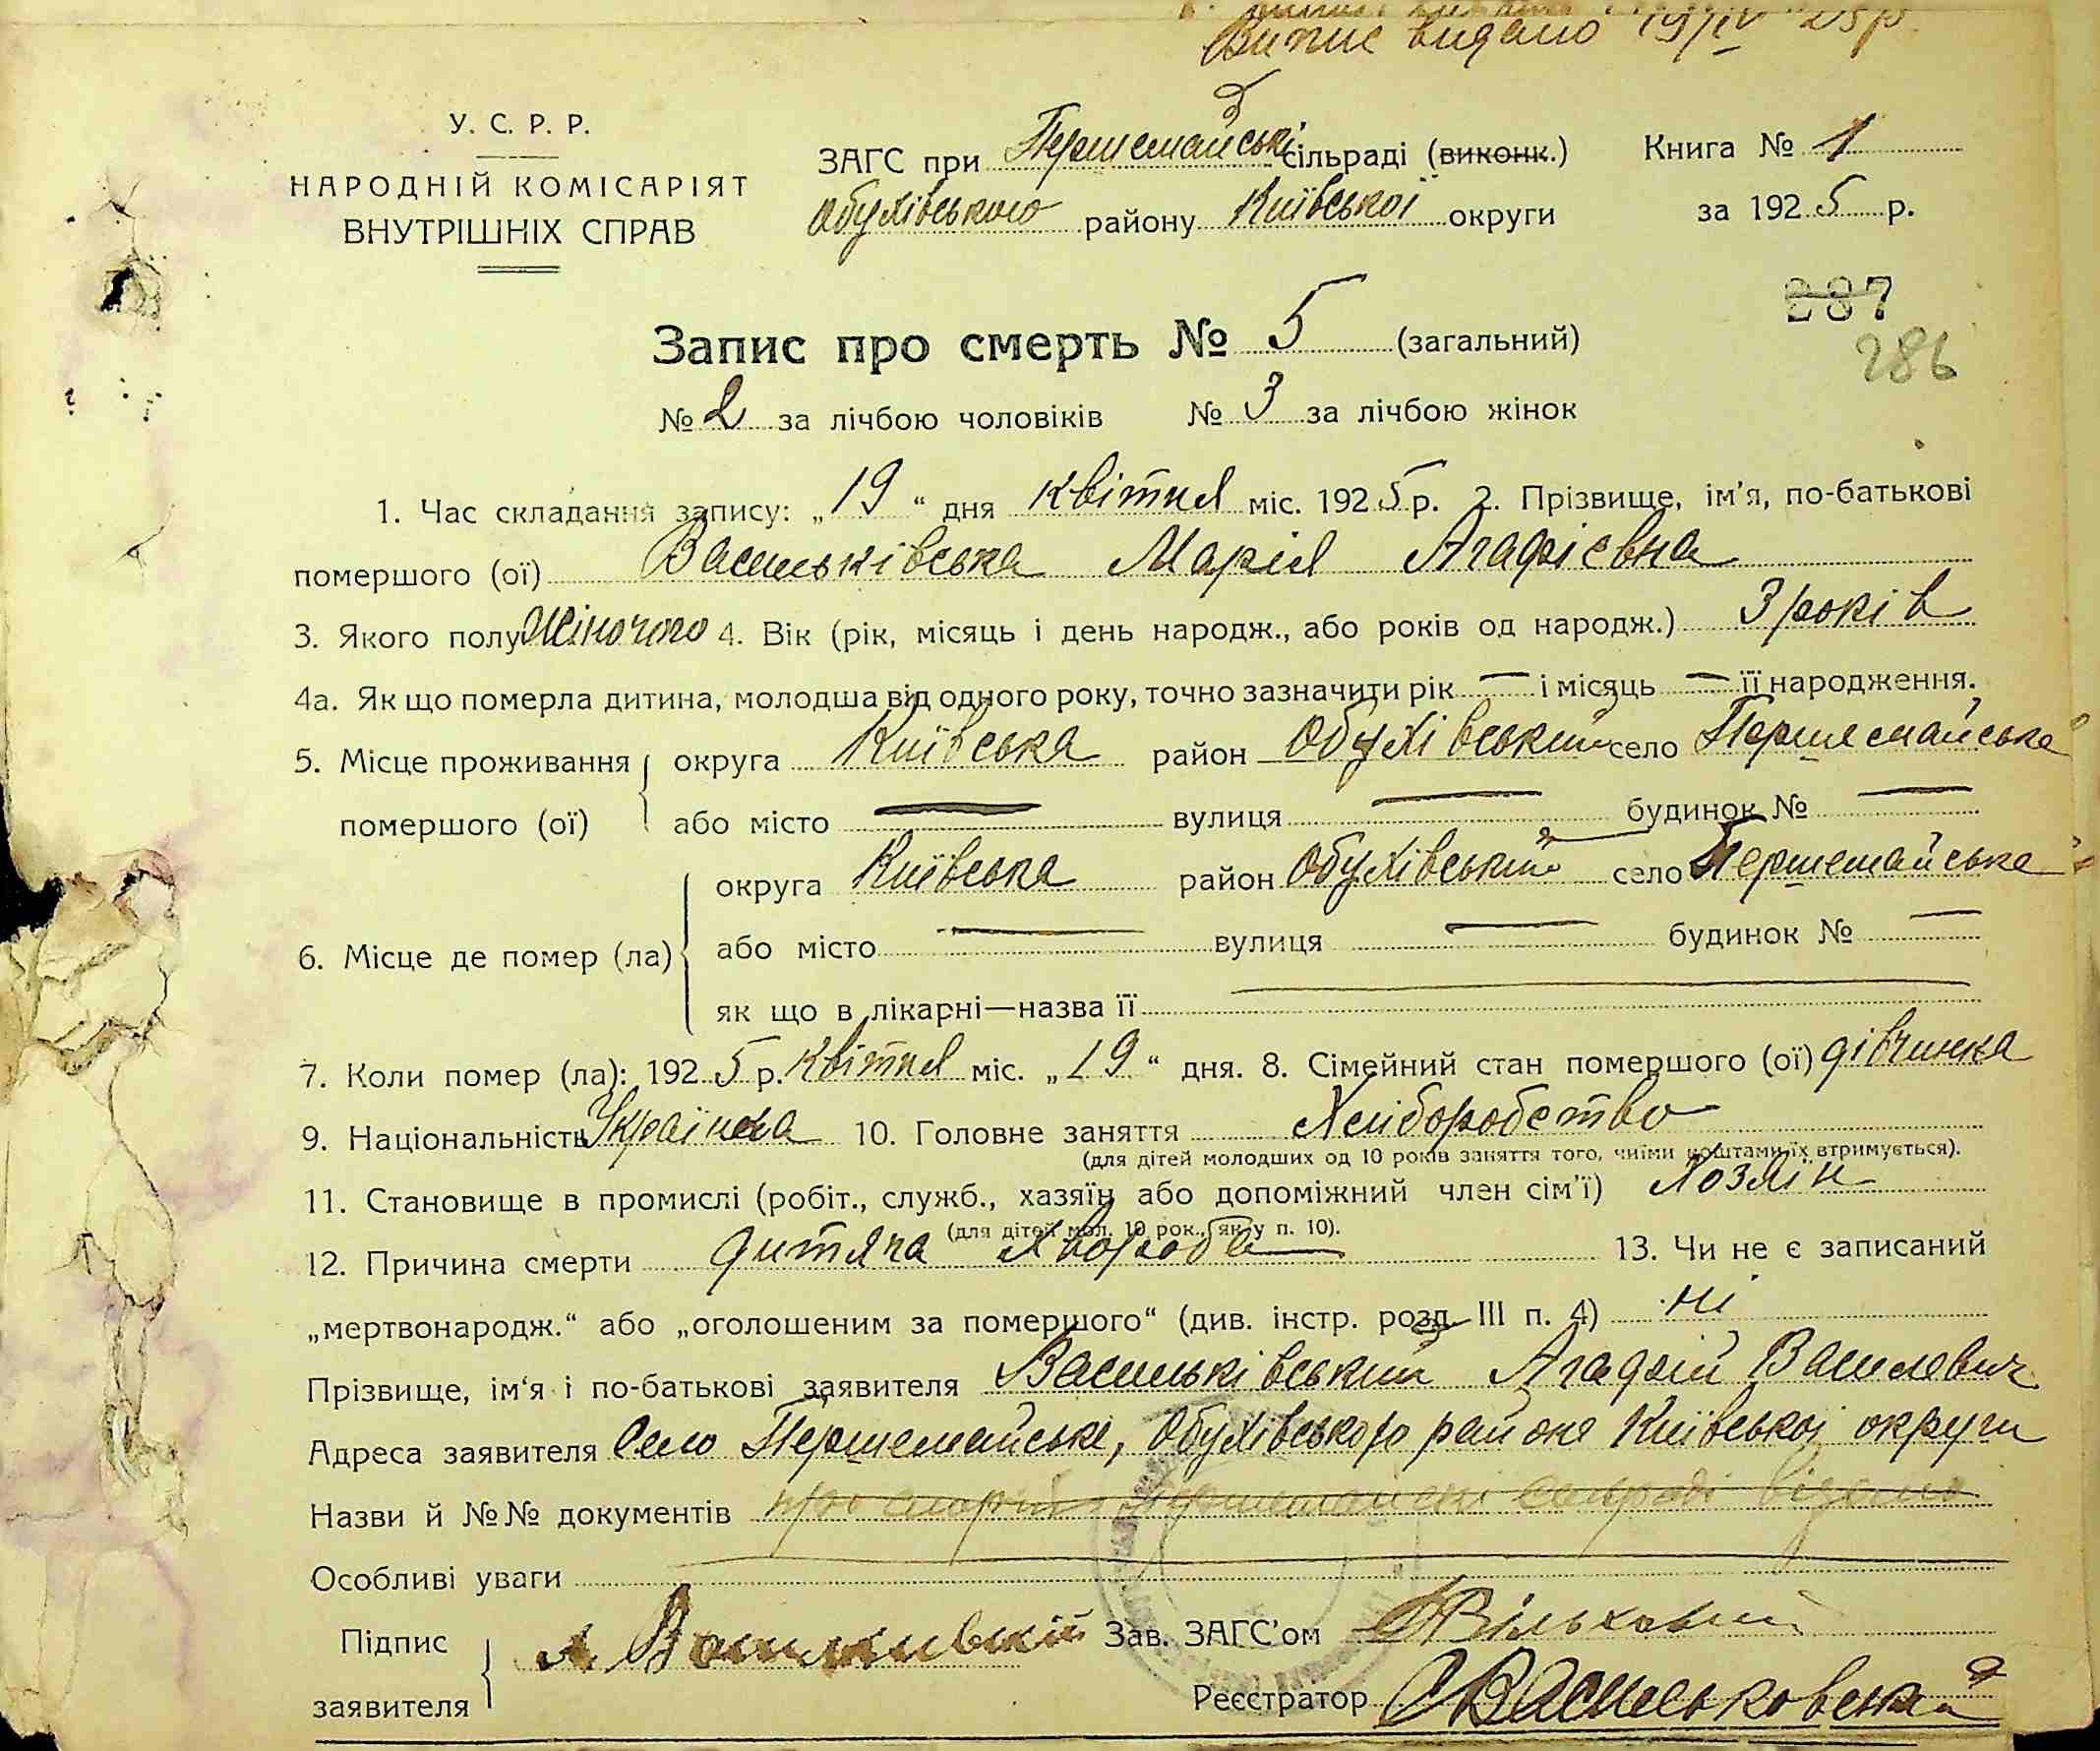 Випис видано 19/IV 25 р.
У. С. Р. Р.
НАРОДНІЙ КОМІСАРІЯТ
ВНУТРІШНІХ СПРАВ
ЗАГС при Першемайські сільраді (виконк.)
Обухівського району Київської округи
Книга № 1
за 1925 р.
287
286
Запис про смерть № 5 (загальний)
№ 2 за лічбою чоловіків № 3 за лічбою жінок
1. Час складання запису: „19“ дня квітня міс. 1925 р. 2. Прізвище, ім'я, по-батькові
помершого (ої) Васильківська Марія Агафієвна
3. Якого полу Жіночого 4. Вік (рік, місяць і день народж., або років од народж.) 3 років
4а. Як що померла дитина, молодша від одного року, точно зазначити рік — і місяць — її народження.
5. Місце проживання округа Київська район Обухівський село Першемайське
помершого (ої) або місто — вулиця — будинок № —
округа Київська район Обухівський село Першемайське
6. Місце де помер (ла) або місто — вулиця — будинок № —
як що в лікарні—назва її —
7. Коли помер (ла): 1925 р. Квітня міс. „19“ дня. 8. Сімейний стан помершого (ої) дівчинка
9. Національність Українка 10. Головне заняття Хліборобство
(для дітей молодших од 10 років заняття того, чиїми коштами їх втримується).
11. Становище в промислі (робіт., служб., хазяїн або допоміжний член сім'ї) Хозяін
(для дітей мол. 10 рок., як у п. 10).
12. Причина смерти дитяча хвороба 13. Чи не є записаний
„мертвонародж.“ або „оголошеним за помершого“ (див. інстр. розд. III п. 4) ні
Прізвище, ім'я і по-батькові заявителя Васильківський Агафій Василевич
Адреса заявителя Село Першемайське, Обухівського району Київської округи
Назви й №№ документів
Особливі уваги
Підпис
заявителя
Зав. ЗАГС'ом Вільховий
Реєстратор Васильковський